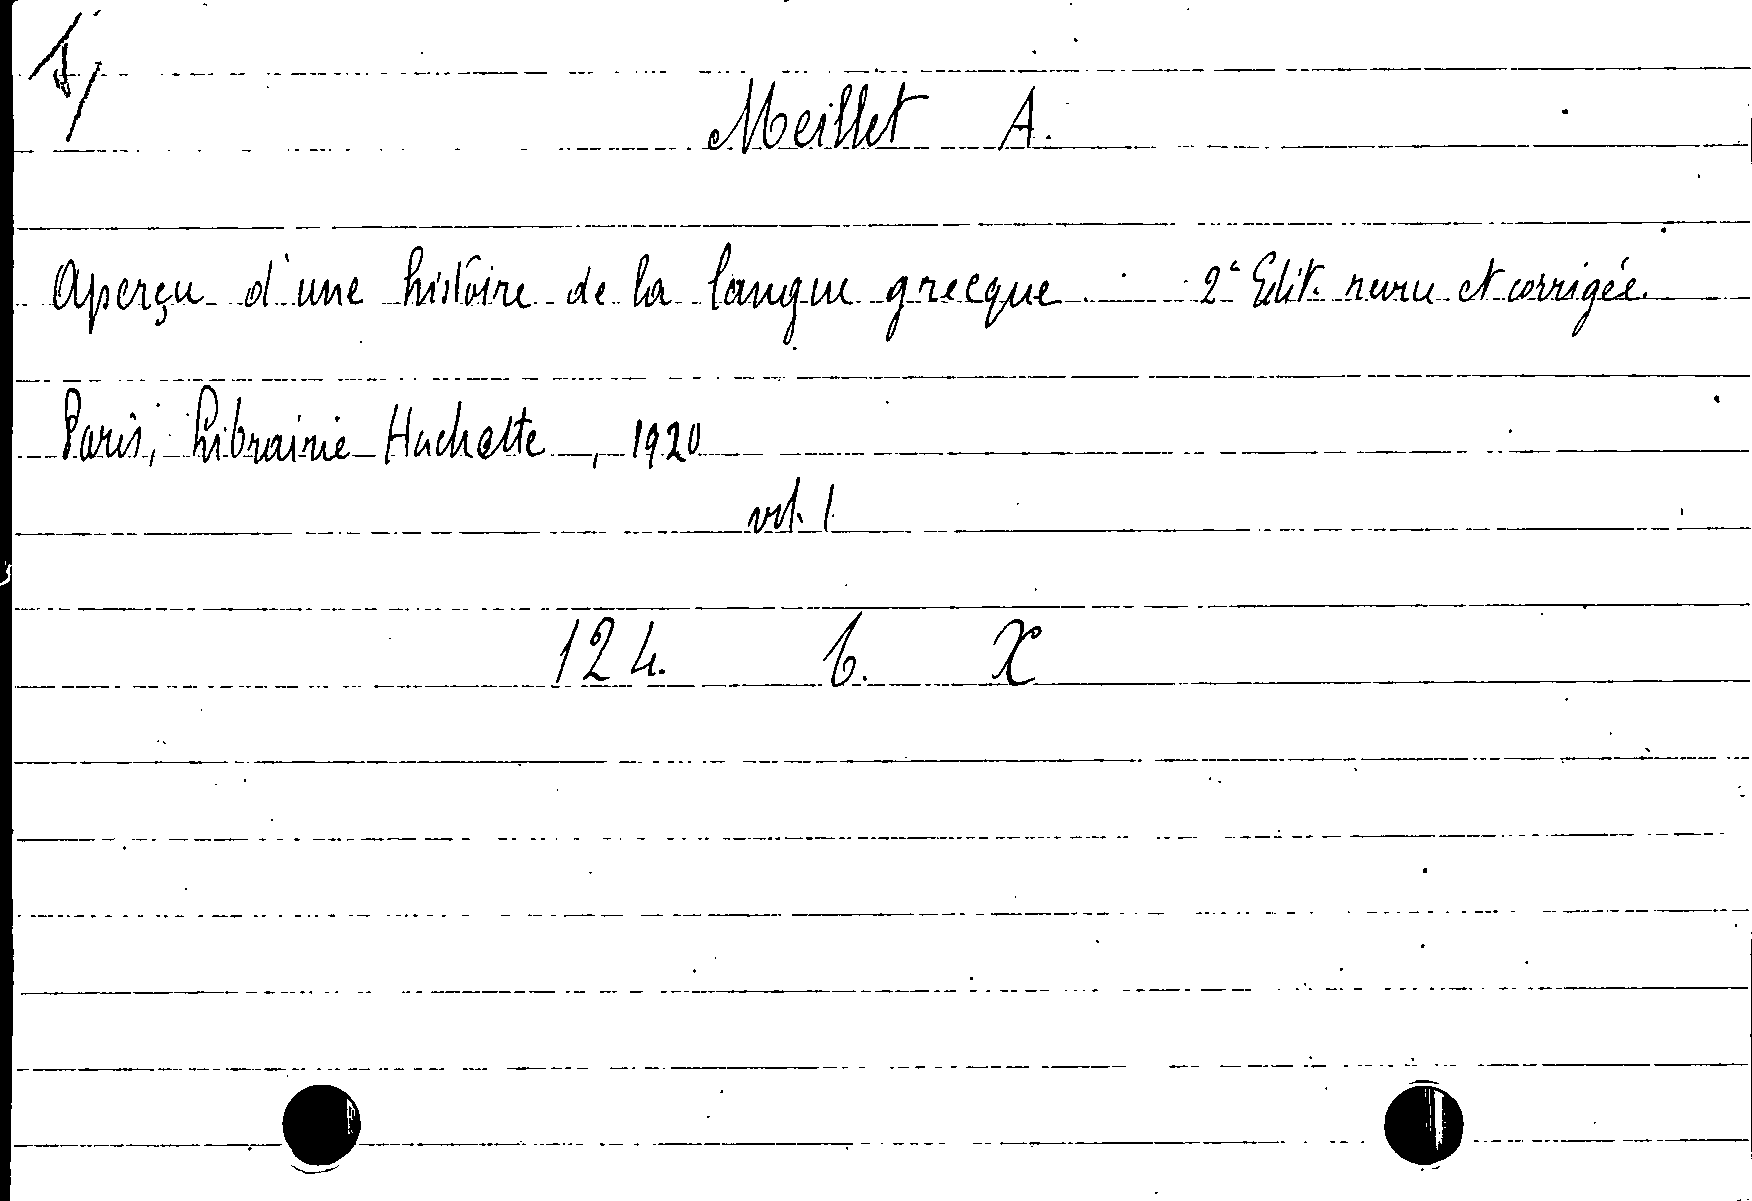 Meillet A.
Aperçu d'une histoire de la langue grecque 2e Edit. revue et corrigée.
Paris, Librairie Hachette, 1920
vol. 1
124. b. X